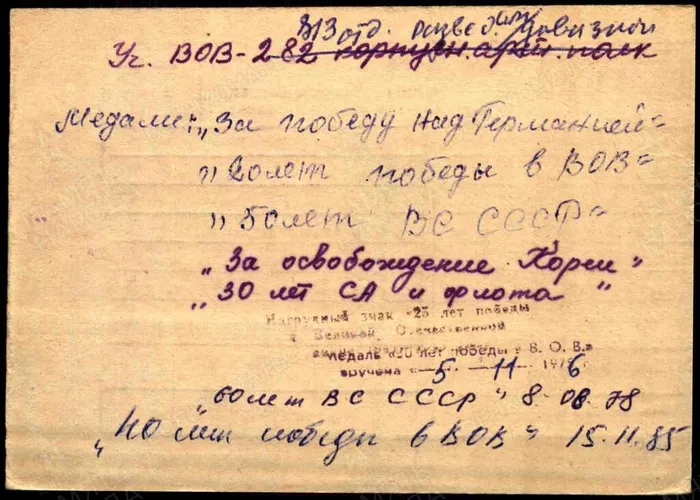 813 отд. развед. дивизион
Уч. ВОВ - 282 корпусн. арт. полк
Медали: „За победу над Германией"
„20 лет победы в ВОВ"
„50 лет ВС СССР"
„За освобождение Кореи"
„30 лет СА и флота"
Нагрудный знак «25 лет победы
в Великой Отечественной
медаль «30 лет победы в В. О. В.»
вручена «5 11 1976
„60 лет ВС СССР" 8.08.78
„40 лет победы в ВОВ" 15.11.85